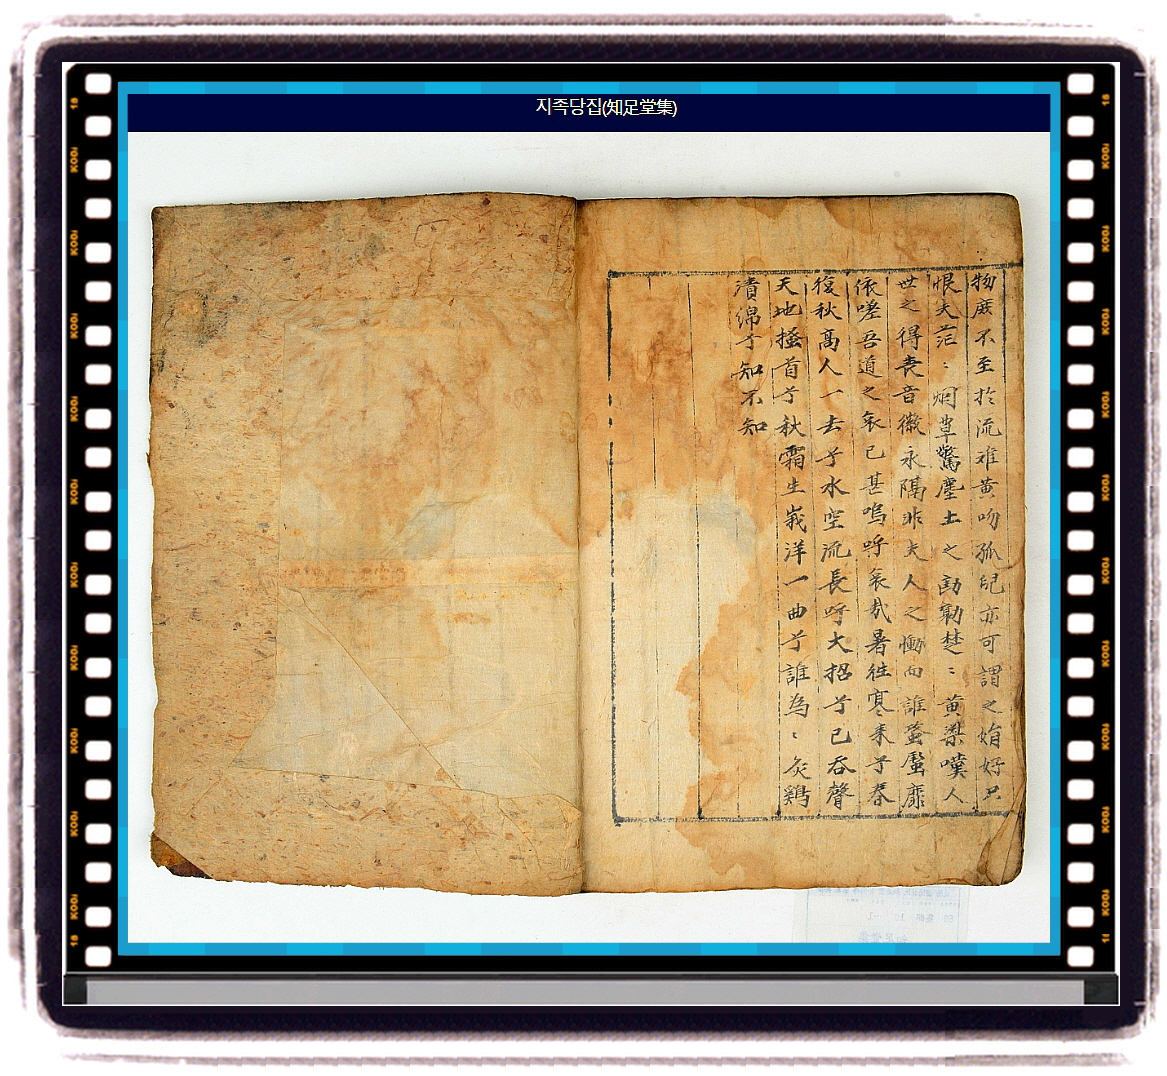 지족당집(知足堂集)
物庶不至於流难黄吻孤兒亦可謂之好只
恨夫茫〻烟草驚塵土之劬勤楚〻黄粱嘆人
世之得丧音徽永隔非夫人之慟向誰靡
依嗟吾道之衰已甚嗚呼哀哉暑徃寒来兮春
復秋高人一去兮水空流長呼大招兮已吞聲
天地搔首兮秋霜生峩洋一曲兮誰為〻炙鷄
漬綿兮知不知